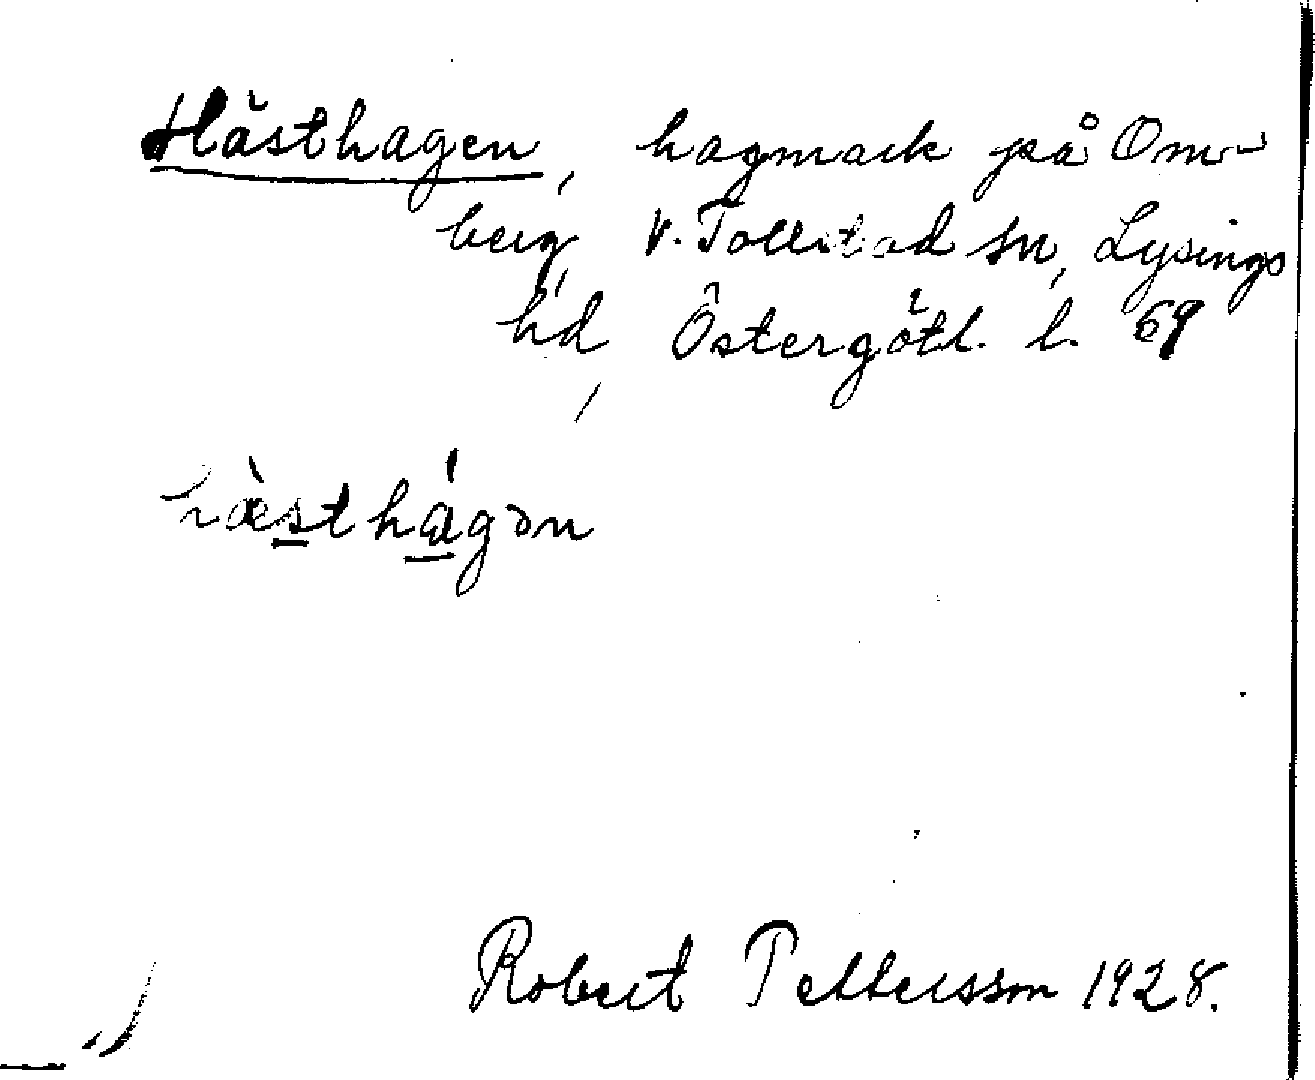 Hästhagen, hagmark på Om-
berg, V. Tollstad sn, Lysings
hd, Östergötl. l. 69
hæ̀sthágən
Robert Pettersson 1928.